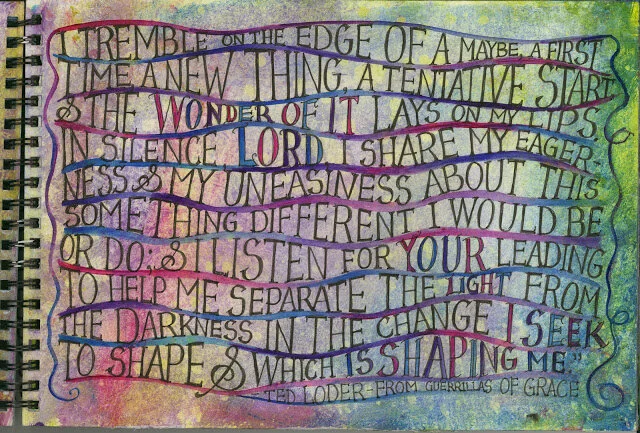 I TREMBLE ON THE EDGE OF A MAYBE, A FIRST
TIME A NEW THING, A TENTATIVE START
& THE WONDER OF IT LAYS ON MY LIPS.
IN SILENCE LORD I SHARE MY EAGER-
NESS & MY UNEASINESS ABOUT THIS
SOMETHING DIFFERENT I WOULD BE
OR DO; & I LISTEN FOR YOUR LEADING
TO HELP ME SEPARATE THE LIGHT FROM
THE DARKNESS IN THE CHANGE I SEEK
TO SHAPE & WHICH IS SHAPING ME."
TED LODER-FROM GUERRILLAS OF GRACE